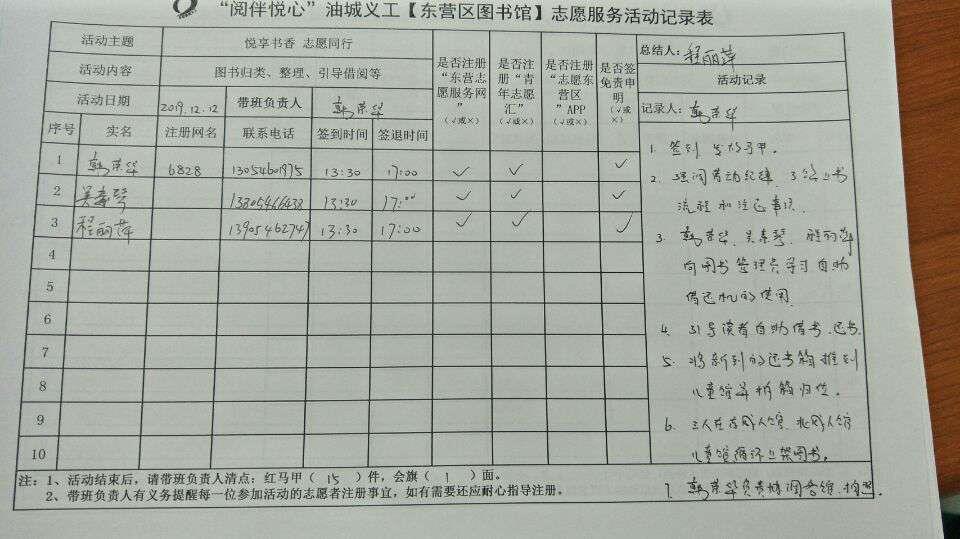 “阅伴悦心”油城义工【东营区图书馆】志愿服务活动记录表
活动主题 悦享书香 志愿同行
活动内容 图书归类、整理、引导借阅等
活动日期 2019.12.12 带班负责人 韩荣华
是否注册“东营志愿服务网”（√或×）
是否注册“青年志愿汇”（√或×）
是否注册“志愿东营区”APP（√或×）
是否签免责申明（√或×）
总结人：程丽萍
活动记录
记录人：韩荣华
序号 实名 注册网名 联系电话 签到时间 签退时间
1 韩荣华 6828 13054601975 13:30 17:00 ✓ ✓ ✓
2 吴 琴 13805466438 13:30 17:00 ✓ ✓ ✓
3 程丽萍 13905462747 13:30 17:00 ✓ ✓ ✓
4
5
6
7
8
9
10
1. 签到 发放马甲。
2. 强调劳动纪律、 上书
流程和注意事项。
3. 韩荣华、吴 琴、程丽萍
向图书管理员学习自助
借还机的使用
4. 引导读者自助借书、还书.
5. 将新到的还书箱推到
儿童馆并拆箱归位。
6. 三人在 成人馆、北成人馆
儿童馆循环上架图书。
7. 韩荣华负责协调 维、拍照.
注：1、活动结束后，请带班负责人清点：红马甲（ 15 ）件，会旗（ 1 ）面。
2、带班负责人有义务提醒每一位参加活动的志愿者注册事宜，如有需要还应耐心指导注册。